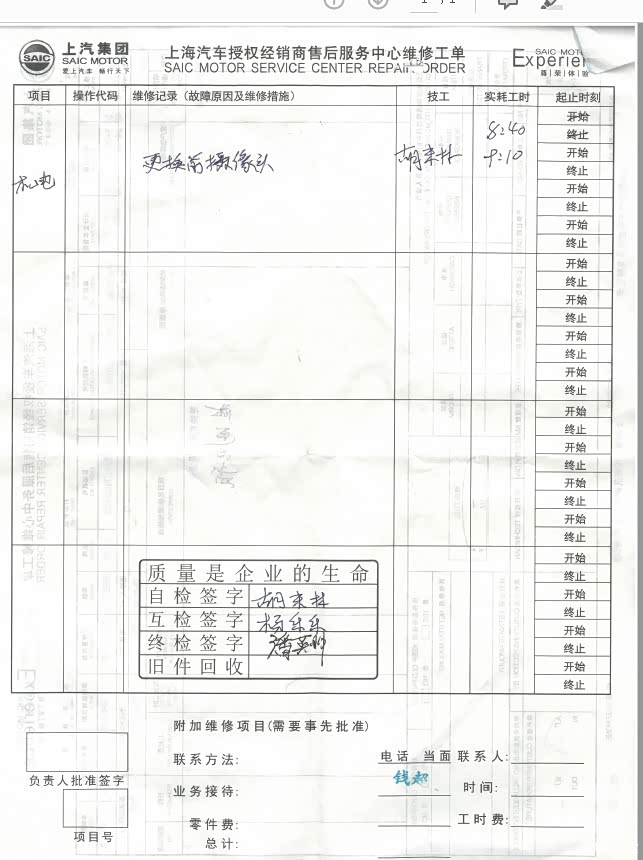 上汽集团
SAIC MOTOR
爱上汽车 畅行天下
上海汽车授权经销商售后服务中心维修工单
SAIC MOTOR SERVICE CENTER REPAIR ORDER
SAIC MOTO
Experien
尊荣体验
项目 操作代码 维修记录（故障原因及维修措施） 技工 实耗工时 起止时刻
开始
8:40 终止
机电 更换前摄像头 胡来林 9:10 开始
终止
开始
终止
开始
终止
开始
终止
开始
终止
开始
终止
开始
终止
开始
终止
开始
终止
开始
终止
开始
终止
开始
终止
开始
终止
开始
终止
开始
终止
质量是企业的生命
自检签字 胡来林
互检签字 杨乐乐
终检签字
旧件回收
附加维修项目(需要事先批准)
联系方法: 电话 当面 联系人:
负责人批准签字
业务接待: 时间:
零件费: 工时费:
项目号
总计: